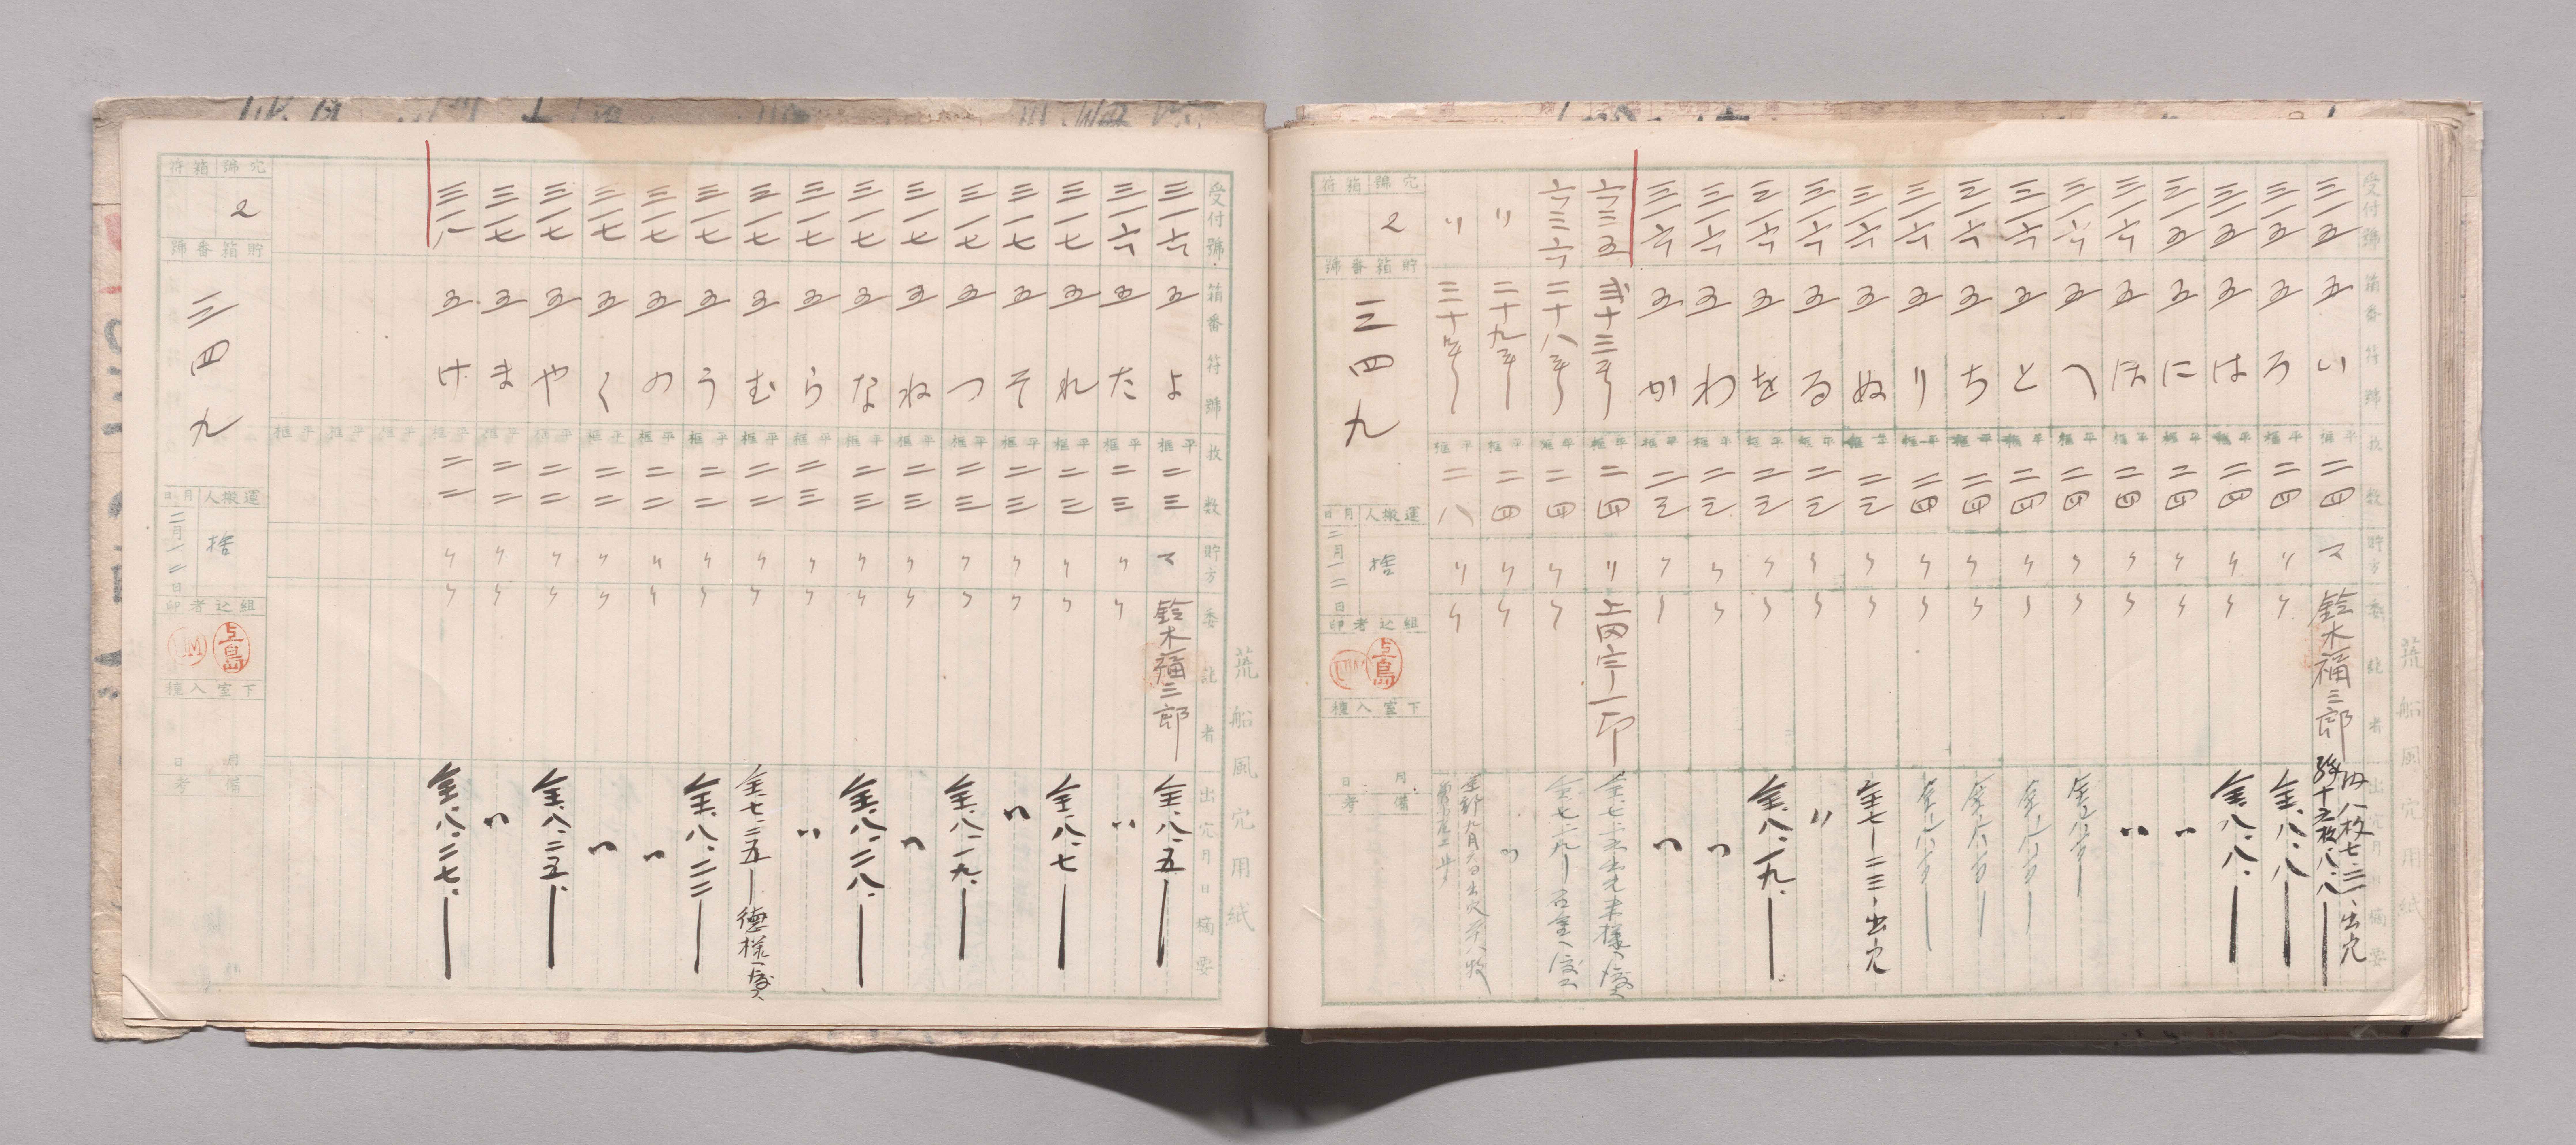 荒船風穴用紙
受付號 箱番符號 枚数 貯方 委託者 出穴月日摘要
三一五 五 い 平框 二四 マ 鈴木福三郎 内八枚七、二一、出穴 残十六枚、八、八
三一五 五 ろ 平框 二四 〃 〃 全、八、八
三一五 五 は 平框 二四 〃 〃 全、八、八、
三一五 五 に 平框 二四 〃 〃 〃
三一六 五 ほ 平框 二四 〃 〃 〃
三一六 五 へ 平框 二四 〃 〃
三一六 五 と 平框 二四 〃 〃
三一六 五 ち 平框 二四 〃 〃
三一六 五 り 平框 二四 〃 〃
三一六 五 ぬ 平框 二三 〃 〃 全七一二三、出穴
三一六 五 る 平框 二三 〃 〃 〃
三一六 五 を 平框 二三 〃 〃 全、八、一九、
三一六 五 わ 平框 二三 〃 〃 〃
三一六 五 か 平框 二三 〃 〃 〃
六三五 弐十三号 平框 二四 〃 上田宗一郎
六三六 二十八号 平框 二四 〃 〃
〃 二十九号 平框 二四 〃 〃 〃
〃 三十号 平框 一八 〃 〃
穴號 箱符
2
貯箱番號
三四九
運搬人 月日
捨 二月一二日
組込者印
上島
下室入穫
月 日
備考
荒船風穴用紙
受付號 箱番符號 枚数 貯方 委託者 出穴月日摘要
三一六 五 よ 平框 二三 マ 鈴木福三郎 全、八、五
三一六 五 た 平框 二三 〃 〃 〃
三一七 五 れ 平框 二三 〃 〃 全、八、七
三一七 五 そ 平框 二三 〃 〃 〃
三一七 五 つ 平框 二三 〃 〃 全、八、一九、
三一七 五 ね 平框 二三 〃 〃 〃
三一七 五 な 平框 二三 〃 〃 全、八、二八、
三一七 五 ら 平框 二三 〃 〃 〃
三一七 五 む 平框 二二 〃 〃 全、七、二五 徳様へ渡ス
三一七 五 う 平框 二二 〃 〃 全、八、二二
三一七 五 の 平框 二二 〃 〃 〃
三一七 五 く 平框 二二 〃 〃 〃
三一七 五 や 平框 二二 〃 〃 全、八、二五、
三一七 五 ま 平框 二二 〃 〃 〃
三一八 五 け 平框 二二 〃 〃 全、八、二七、
平框 平框 平框
穴號 箱符
2
貯箱番號
三四九
運搬人 月日
捨 二月一二日
組込者印
上島
下室入穫
月 日
備考